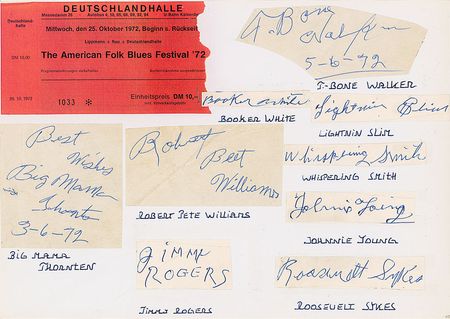 DEUTSCHLANDHALLE
Messedamm 26
Deutschland-
halle
Mittwoch, den 25. Oktober 1972, Beginn s. Rückseite
Lippmann + Rau + Deutschlandhalle
DM 10,00
The American Folk Blues Festival '72
25.10.1972
1033 *
Einheitspreis DM 10,–
T-Bone
Walker
5-6-72
T-BONE WALKER
Booker White
BOOKER WHITE
Lightnin Slim
LIGHTNIN SLIM
Best
Wishes
Big Mama
Thornton
3-6-72
BIG MAMA
THORNTEN
Robert
Peet
Williams
ROBERT PETE WILLIAMS
Whispering Smith
WHISPERING SMITH
Johnie Young
JOHNNIE YOUNG
JIMMY
ROGERS
JIMMY ROGERS
Roosevelt Sykes
ROOSEVELT SYKES